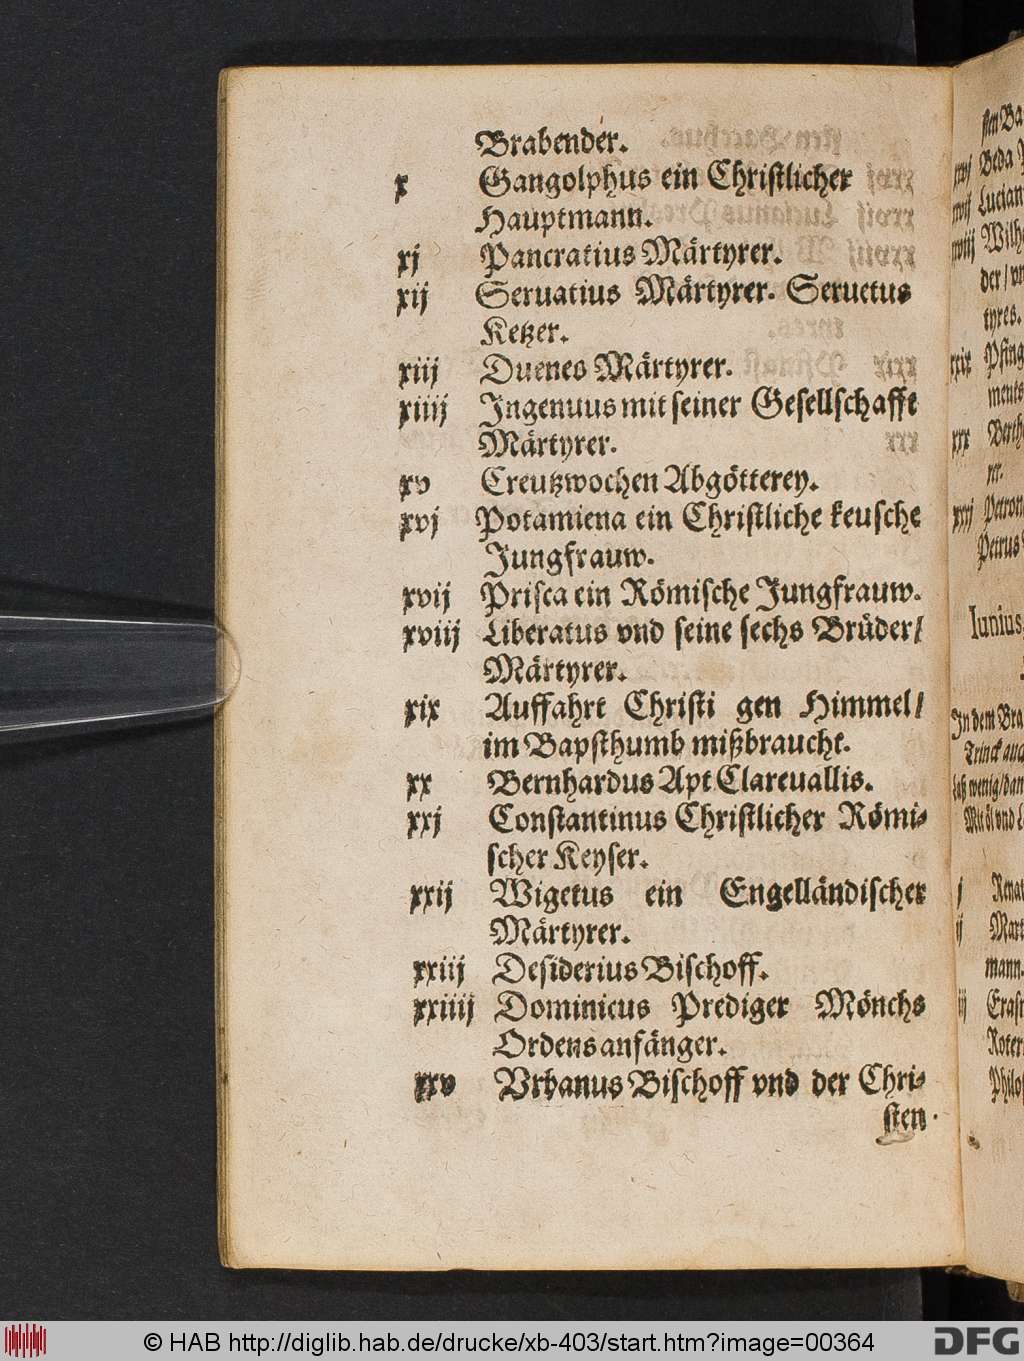 Brabender.
x Gangolphus ein Christlicher
Hauptmann.
xj Pancratius Märtyrer.
xij Seruatius Märtyrer. Seruetus
Ketzer.
xiij Duenes Märtyrer.
xiiij Ingenuus mit seiner Gesellschafft
Märtyrer.
xv Creutzwochen Abgötterey.
xvj Potamiena ein Christliche keusche
Jungfrauw.
xvij Prisca ein Römische Jungfrauw.
xviij Liberatus vnd seine sechs Brüder/
Märtyrer.
xix Auffahrt Christi gen Himmel/
im Bapsthumb mißbraucht.
xx Bernhardus Apt Clareuallis.
xxj Constantinus Christlicher Römi-
scher Keyser.
xxij Wigetus ein Engelländischer
Märtyrer.
xxiij Desiderius Bischoff.
xxiiij Dominicus Prediger Mönchs
Ordens anfänger.
xxv Vrbanus Bischoff vnd der Chri-
sten
sten Ba
xxvj Beda
xxvij Lucian
xxviij Wilh
der/ vn
tyres.
xxix Pfing
ments
xxx Berth
rer.
xxxj Petron
Petrus
Iunius
In dem Bra
Trinck auc
Laß wenig/ dan
Mit öl vnd L
j Renat
ij Mart
mann.
iij Erasm
Roter
Philos
© HAB http://diglib.hab.de/drucke/xb-403/start.htm?image=00364
DFG